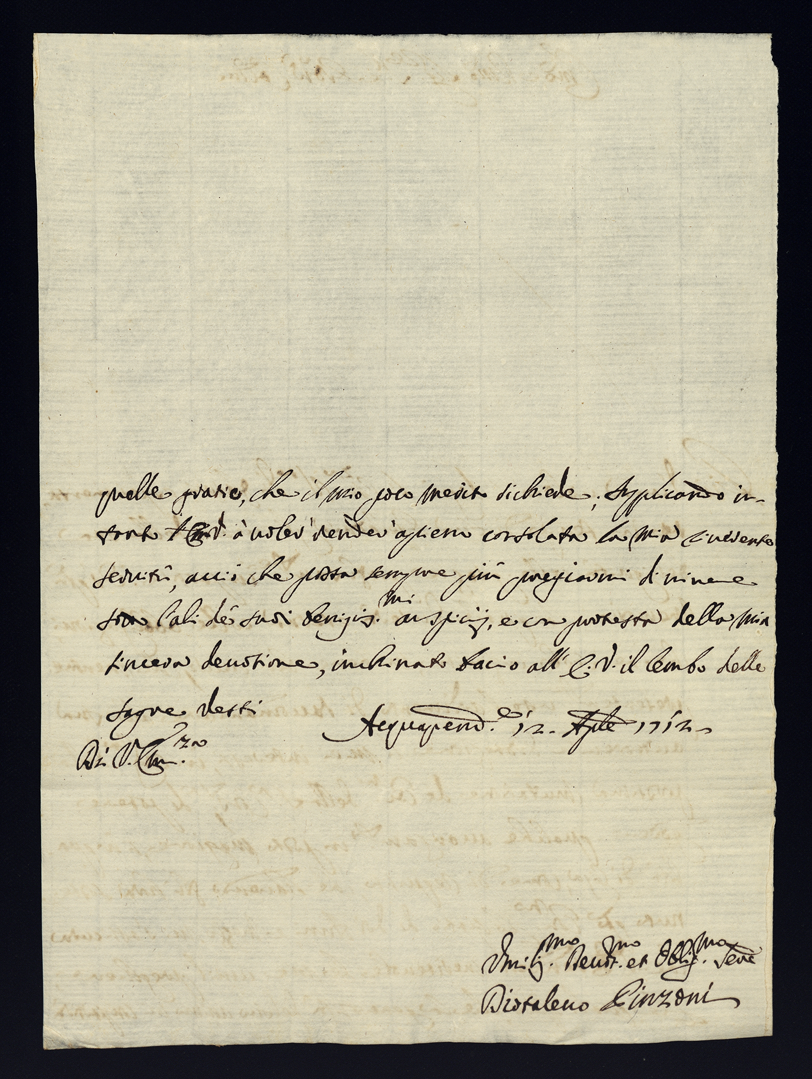 quelle gratie, che il mio poco merito richiede; supplicando in-
tanto à voler render appieno consolata la mia riverente
servitù, acciò che possa sempre più pregiarmi di vivere
sotto l'ali de suoi benigniss.mi auspicij, e con protesta della mia
sincera devotione, inchinato bacio all' E.V. il lembo delle
sagre vesti
Acquapend.e 12. Aple 1712
Di V. Em.za
Umilis.mo Devot.mo et Oblig.mo Serv.e
Pinzoni